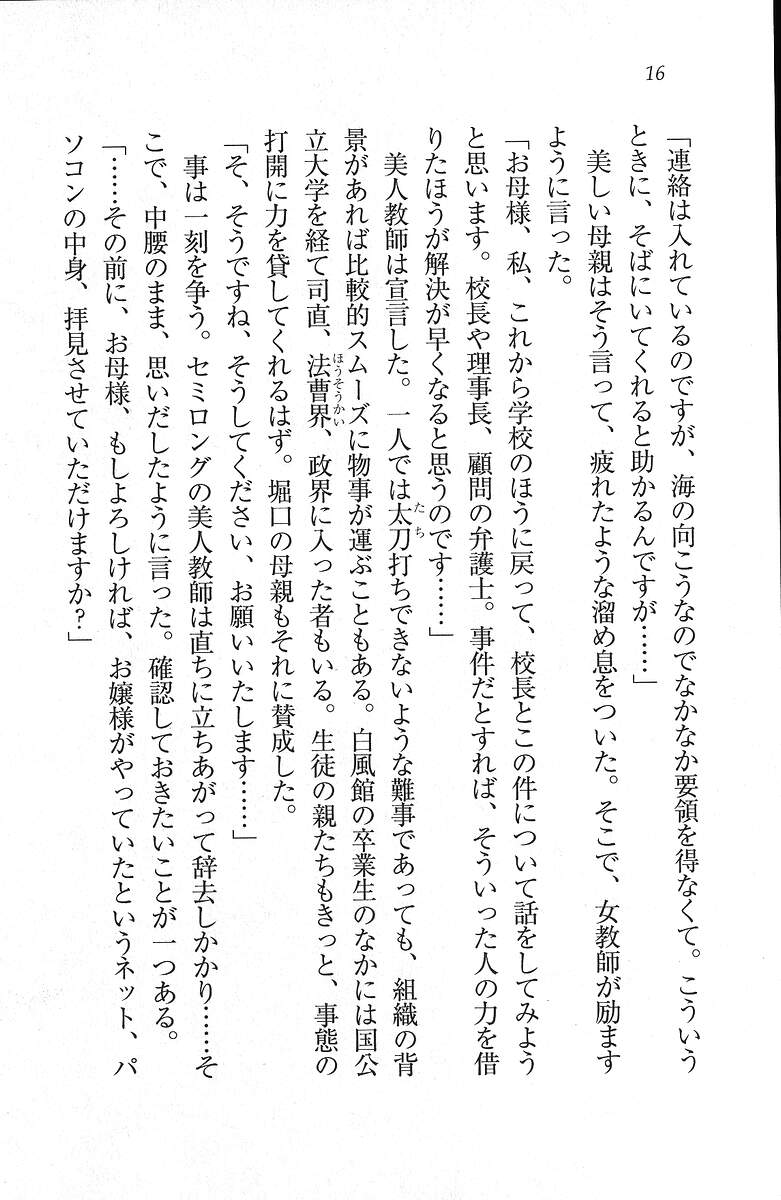 16
「連絡は入れているのですが、海の向こうなのでなかなか要領を得なくて。こういう
ときに、そばにいてくれると助かるんですが……」
美しい母親はそう言って、疲れたような溜め息をついた。そこで、女教師が励ます
ように言った。
「お母様、私、これから学校のほうに戻って、校長とこの件について話をしてみよう
と思います。校長や理事長、顧問の弁護士。事件だとすれば、そういった人の力を借
りたほうが解決が早くなると思うのです……」
美人教師は宣言した。一人では太刀打ちできないような難事であっても、組織の背
景があれば比較的スムーズに物事が運ぶこともある。白風館の卒業生のなかには国公
立大学を経て司直、法曹界、政界に入った者もいる。生徒の親たちもきっと、事態の
打開に力を貸してくれるはず。堀口の母親もそれに賛成した。
「そ、そうですね、そうしてください、お願いいたします……」
事は一刻を争う。セミロングの美人教師は直ちに立ちあがって辞去しかかり……そ
こで、中腰のまま、思いだしたように言った。確認しておきたいことが一つある。
「……その前に、お母様、もしよろしければ、お嬢様がやっていたというネット、パ
ソコンの中身、拝見させていただけますか？」